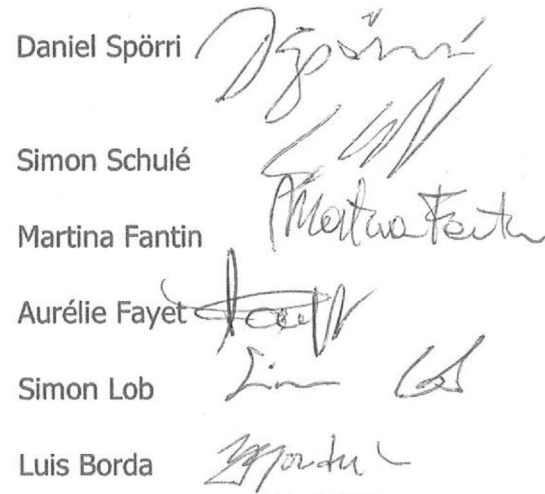 Daniel Spörri DSpörri
Simon Schulé
Martina Fantin Martina Fantin
Aurélie Fayet
Simon Lob Simon Lob
Luis Borda